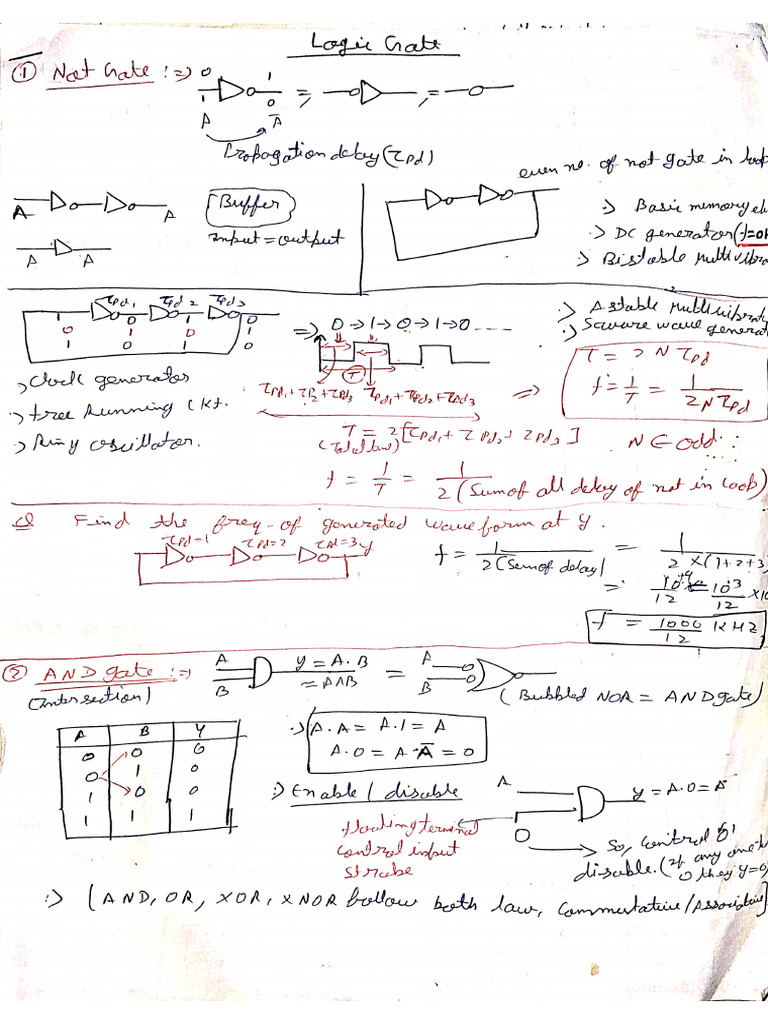 Logic Gate
① Not Gate :⇒ 0 1
1 0
= , = ,
A Ā
Propagation delay (τpd)
even no. of not gate in loop
A A
Buffer
Input = output
A A
:) Basic memory el
:) DC generator (f=0H
:) Bistable Multivibra
τpd1 τpd2 τpd3
0 1 0 1
1 0 1 0
⇒ 0→1→0→1→0 ----
T
:) Astable Multivibrat
:) Square wave generat
:) Clock generator
:) free Running Ckt.
:) Ring oscillator.
τpd1+τp2+τpd3 τpd1+τpd2+τpd3
⇒ T = 2Nτpd
f = 1/T = 1/2Nτpd
T = 2[τpd1 + τpd2 + τpd3]
N ∈ odd
f = 1/T = 1/2(Sum of all delay of not in loop)
Q Find the freq. of generated waveform at y.
τpd=1 τpd=2 τpd=3 y
f = 1/2(Sum of delay) = 1/2×(1+2+3
= 10+9/12 = 10³/12 ×10
f = 1000/12 KHz
② AND gate :⇒
(Intersection)
A
B
y = A.B
= A∧B
=
A
B
(Bubbled NOR = AND gate)
A B Y
0 0 0
0 1 0
1 0 0
1 1 1
:) A.A = A.1 = A
A.0 = A.Ā = 0
:) Enable / disable
floating terminal
control input
strobe
A
0
y = A.0 = A
So, control '0'
disable. (If any one t
0 they y=0
:) [AND, OR, XOR, XNOR follow both law, Commutative/Associative]